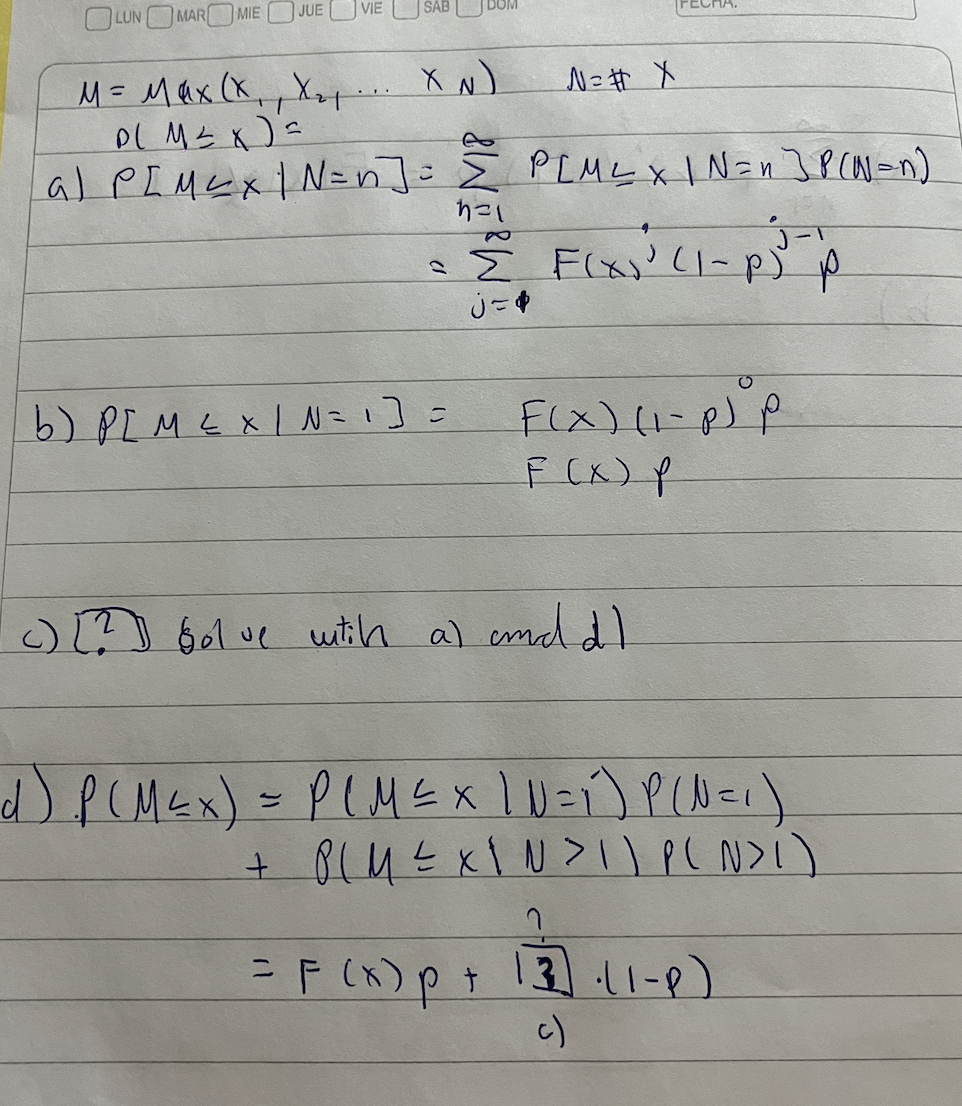 LUN MAR MIE JUE VIE SAB DOM FECHA:
M = Max(X₁, X₂, ... X N) N = # X
P( M ≤ x ) =
a) P[M ≤ x | N = n] = ∞∑n=1 P[M ≤ x | N = n] P(N = n)
= ∞∑j=1 F(x)^j (1-p)^j-1 p
b) P[M ≤ x | N = 1] = F(x) (1-p)^0 p
F(x) p
c) [?] Solve wtih a) and d)
d) P(M ≤ x) = P(M ≤ x | N = 1) P(N = 1)
+ P(M ≤ x | N > 1) P(N > 1)
?
= F(x) p + [3] · (1-p)
c)